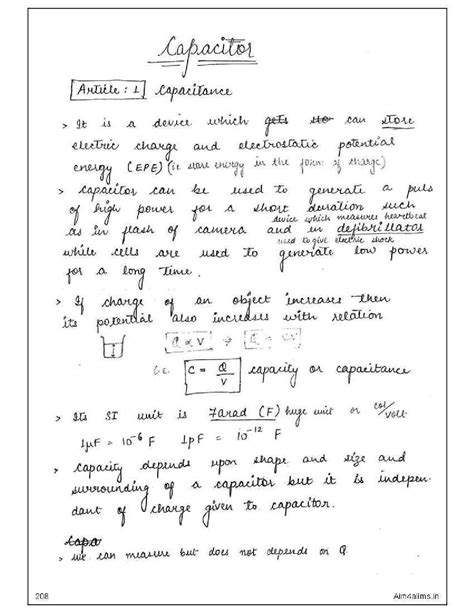 Capacitor
Article: 1 Capacitance
> It is a device which gets sto can store
electric charge and electrostatic potential
energy (EPE) (ie store energy in the form of charge)
> Capacitor can be used to generate a puls
of high power for a short duration such
device which measures heartbeat
as in flash of camera and in defibrillators
used to give electric shock
while cells are used to generate low power
for a long time.
> If charge of an object increases then
its potential also increases with relation
Q ∝ V → Q = CV
i.e. C = Q/V capacity or capacitance
> Its SI unit is Farad (F) huge unit or col/volt
1μF = 10⁻⁶ F 1pF = 10⁻¹² F
> Capacity depends upon shape and size and
surrounding of a capacitor but it is indepen-
dant of charge given to capacitor.
Capa
> we can measure but does not depends on Q
208
Aim4aiims.in